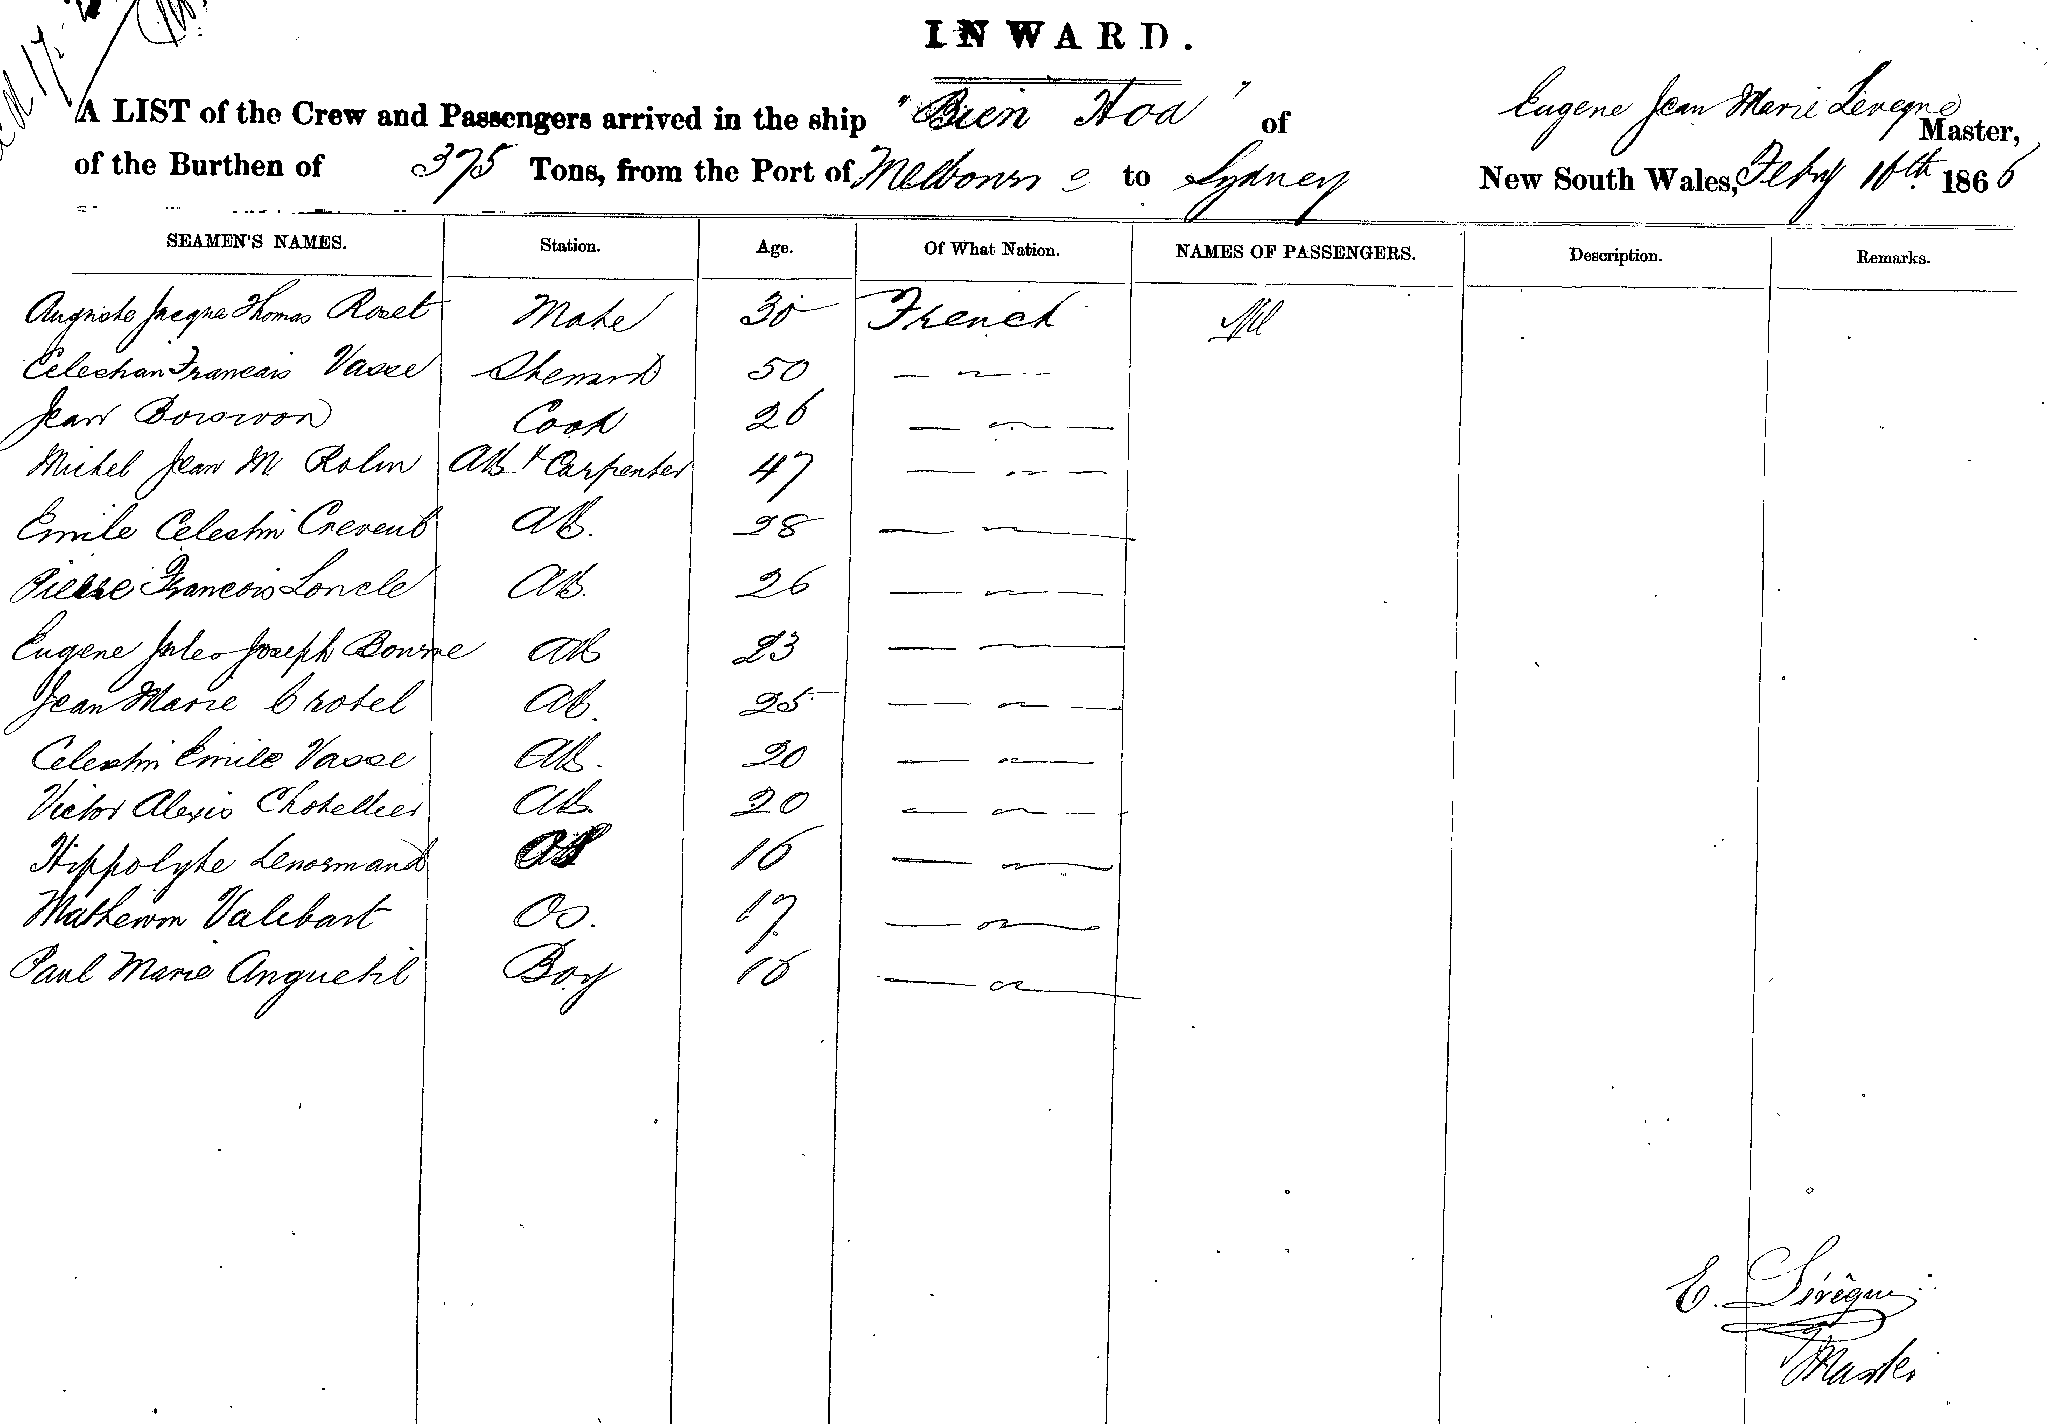 INWARD.
A LIST of the Crew and Passengers arrived in the ship "Bien Hoa" of Eugene Jean Marie Leveque Master,
of the Burthen of 375 Tons, from the Port of Melbourne to Sydney New South Wales, Feby 16th 1866
SEAMEN'S NAMES. Station. Age. Of What Nation. NAMES OF PASSENGERS. Description. Remarks.
Auguste Jacque Thomas Roset Mate 30 French Nil
Celestian Francais Vasse Steward 50 — " —
Jean Cook 26 — " —
Michel Jean M Rolin AB & Carpenter 47 — " —
Emile Celestin Creveub AB. 28 — " —
Pierre Francois Loncle AB. 26 — " —
Eugene Jules Joseph Bourne AB 23 — " —
Jean Marie Crotel AB. 25 — " —
Celestin Emile Vasse AB. 20 — " —
Victor Alexis Chotellier AB. 20 — " —
Hippolyte Lenormand 16 — " —
Valebart OS. 17 — " —
Paul Marie Anquetil Boy 16 — " —
E. Lévêque
Master